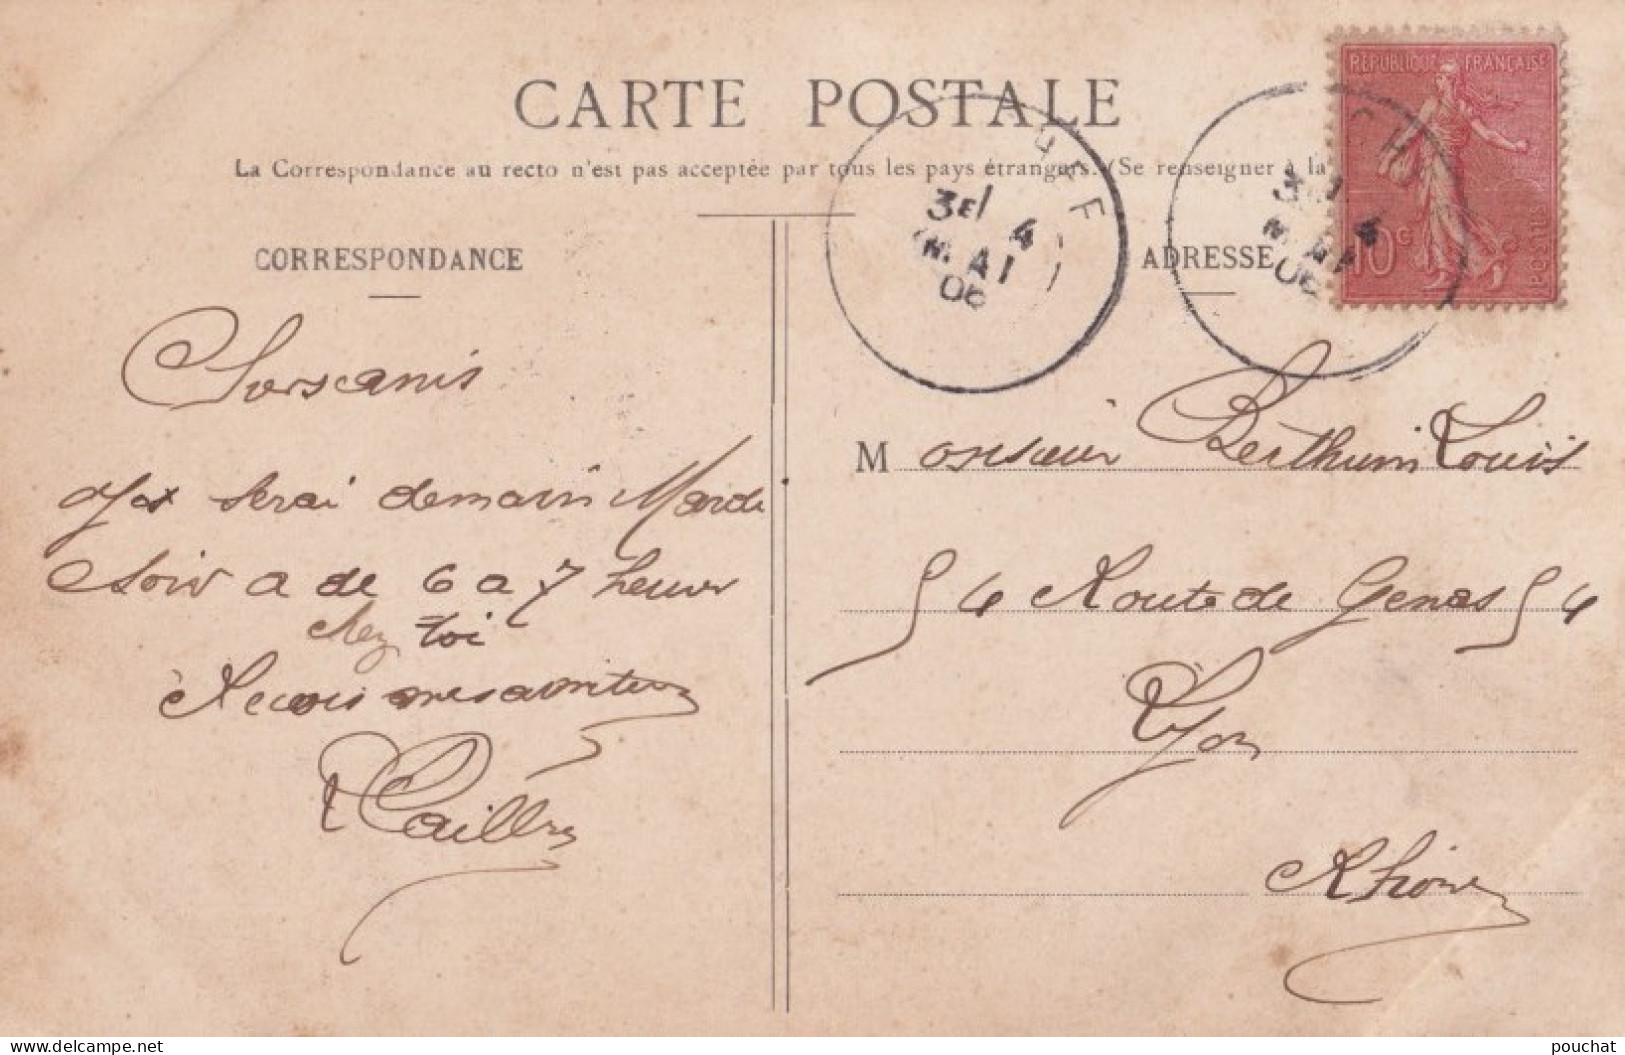 CARTE POSTALE
La Correspondance au recto n'est pas acceptée par tous les pays étrangers. (Se renseigner à la
RÉPUBLIQUE FRANÇAISE
10c
POSTES
3E 4
MAI
06
3E 4
MAI
06
CORRESPONDANCE
ADRESSE
serai demain Mardi
Soir a de 6 a 7 heures
chez toi
Recois mes amities
Monsieur Berthuin Louis
54 Route de Genas 54
Lyon
Rhône
delcampe.net
pouchat